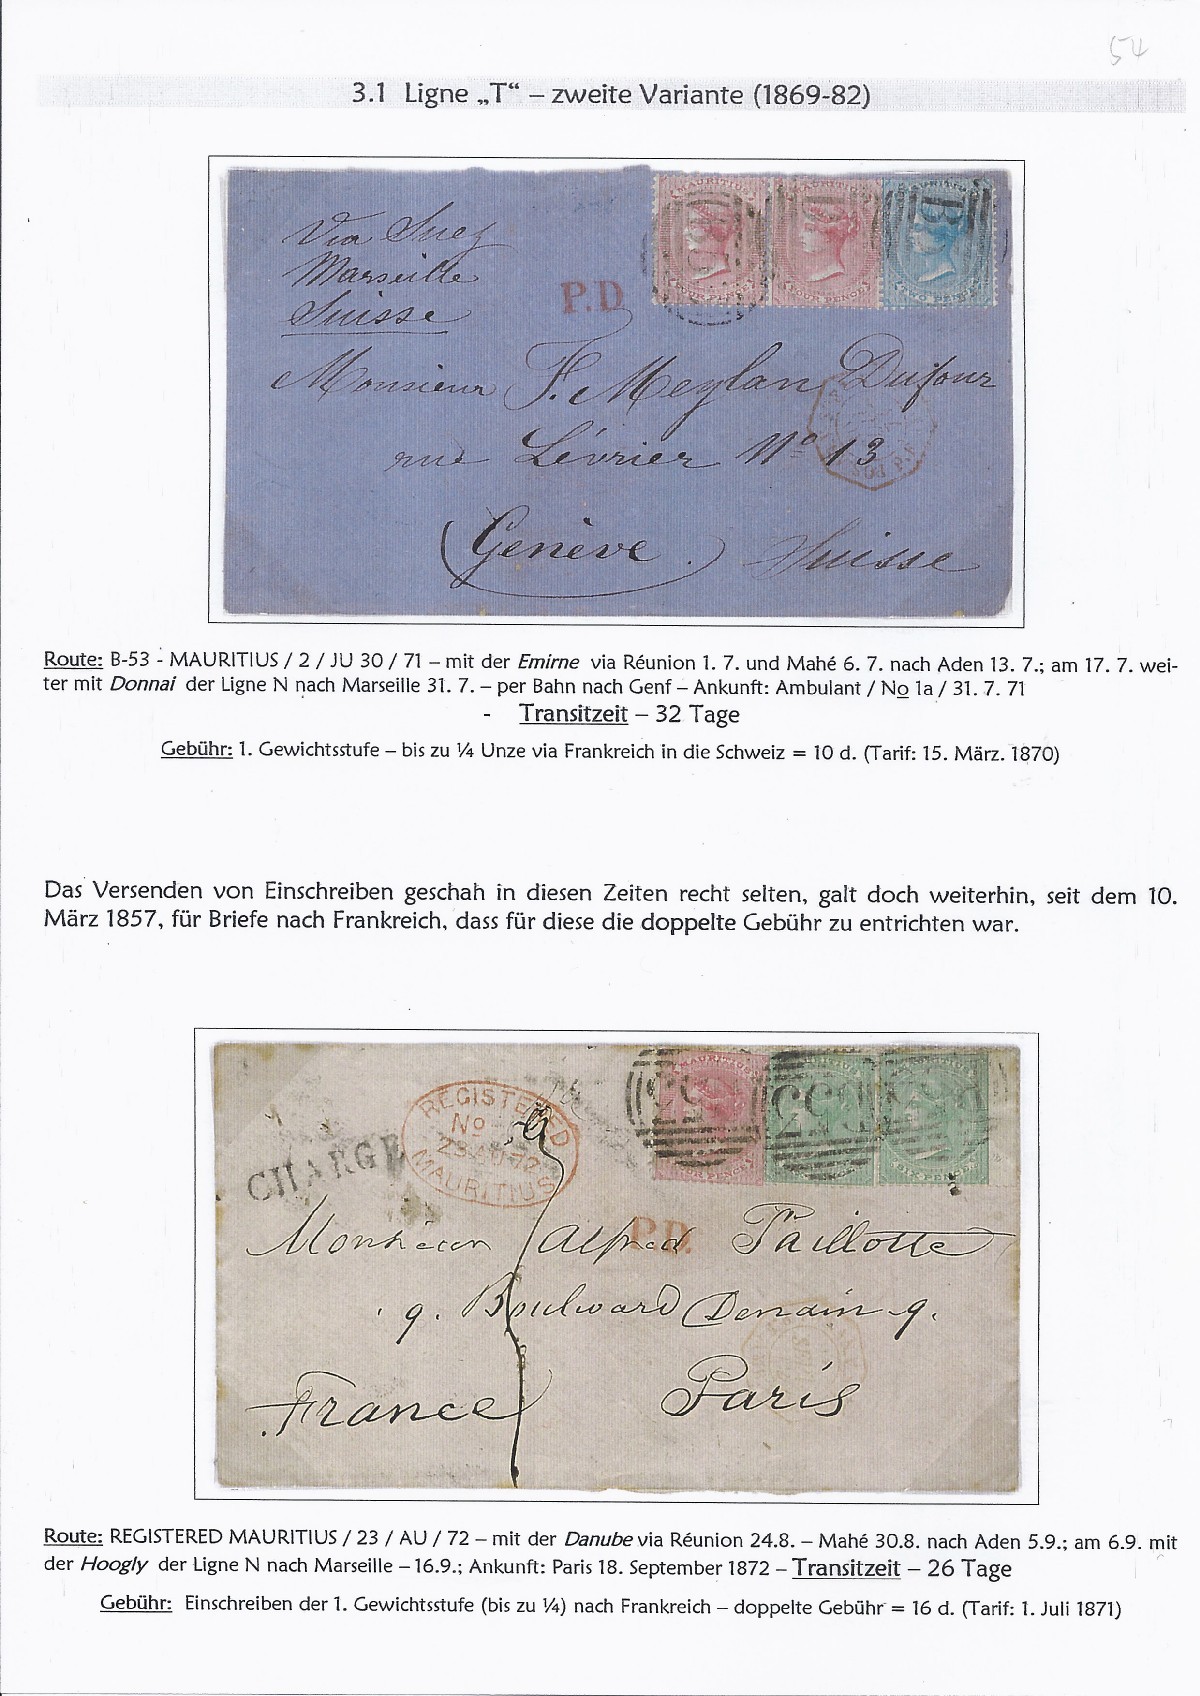 54
3.1 Ligne „T“ – zweite Variante (1869-82)
MAURITIUS
FOUR PENCE
FOUR PENCE
TWO PENCE
Via Suez
Marseille
Suisse
P.D.
Monsieur F. Meylan Dufour
rue Lévrier No 13
Genève Suisse
Route: B-53 - MAURITIUS / 2 / JU 30 / 71 – mit der Emirne via Réunion 1. 7. und Mahé 6. 7. nach Aden 13. 7.; am 17. 7. wei-
ter mit Donnai der Ligne N nach Marseille 31. 7. – per Bahn nach Genf – Ankunft: Ambulant / No 1a / 31. 7. 71
- Transitzeit – 32 Tage
Gebühr: 1. Gewichtsstufe – bis zu ¼ Unze via Frankreich in die Schweiz = 10 d. (Tarif: 15. März. 1870)
Das Versenden von Einschreiben geschah in diesen Zeiten recht selten, galt doch weiterhin, seit dem 10.
März 1857, für Briefe nach Frankreich, dass für diese die doppelte Gebühr zu entrichten war.
MAURITIUS
FOUR PENCE
SIX PENCE
B53
REGISTERED
No
23 AU 72
MAURITIUS
CHARGE
P.D.
Monsieur Alfred Paillotte
9. Boulevard Denain 9.
France Paris
Route: REGISTERED MAURITIUS / 23 / AU / 72 – mit der Danube via Réunion 24.8. – Mahé 30.8. nach Aden 5.9.; am 6.9. mit
der Hoogly der Ligne N nach Marseille – 16.9.; Ankunft: Paris 18. September 1872 – Transitzeit – 26 Tage
Gebühr: Einschreiben der 1. Gewichtsstufe (bis zu ¼) nach Frankreich – doppelte Gebühr = 16 d. (Tarif: 1. Juli 1871)